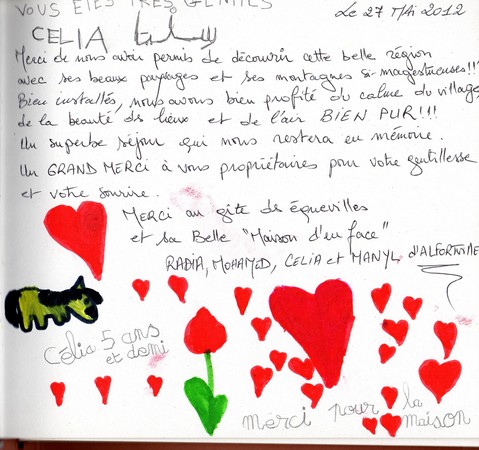 VOUS ETES TRES GENTILS
Le 27 MAI 2012
CELIA سيليا
Merci de nous avoir permis de découvrir cette belle région
avec ses beaux paysages et ses montagnes si magestueuses!!
Bien installés, nous avons bien profité du calme du village,
de la beauté des lieux et de l'air BIEN PUR!!!
Un superbe séjour qui nous restera en mémoire.
Un GRAND MERCI à vous propriétaires pour votre gentillesse
et votre sourire.
MERCI au gîte des équevilles
et sa Belle "Maison d'en face"
RADIA, MOHAMED, CELIA et MANYL d'ALFORTVILLE
Célia 5 ans
et demi
merci pour la
maison